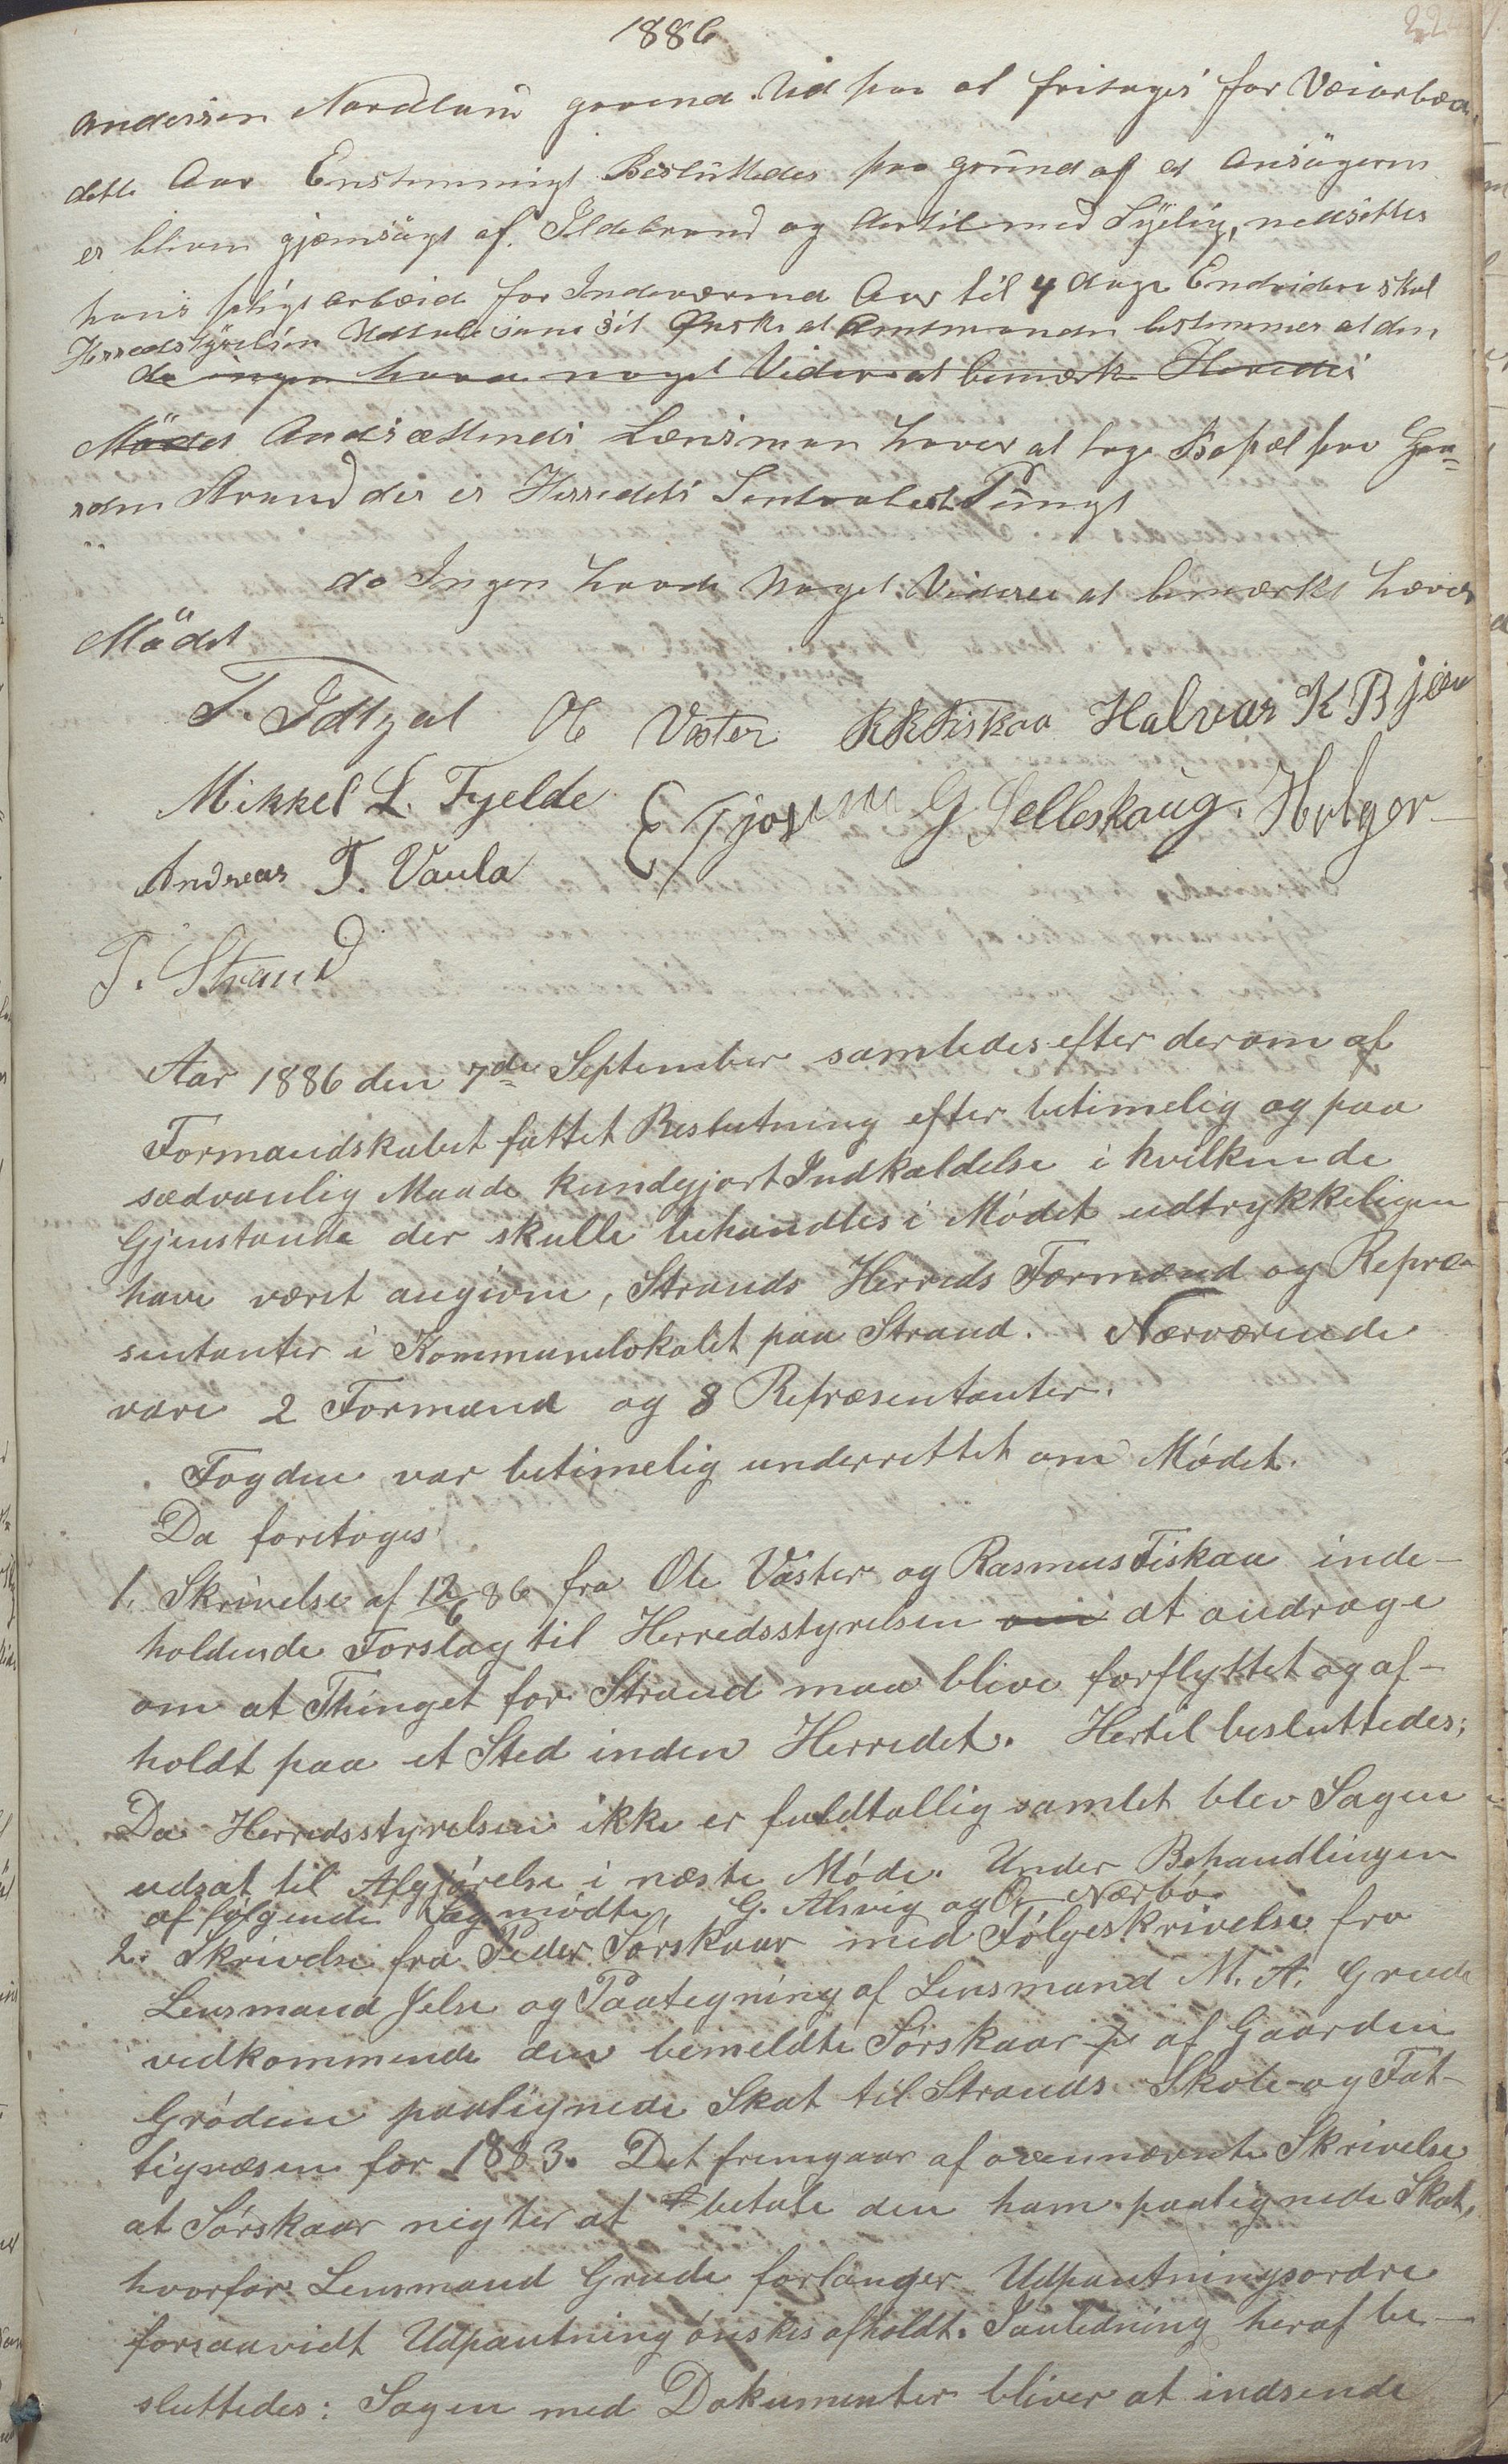 1886
Andersen Nordland gaaend. Ud paa at fritages for Veiarbæd
dette Aar Enstemmigt Besluttedes paa grund af at Ansögeren
er bleven hjemsögt af Ildebrand og dertil med Sÿelig, nedsettes
hans pligtarbeid for Indeværend Aar til 4 dage Endvidere skal
Herredstÿrelsen Udtale som sit Ønske at Amtmanden bestemmer at den
da ingen havde noget Videre at bemærk Hevedes
Mödet Andsættends Lensman haver at tage Bopæl paa Gaa=
rden Strand der er Herredets Sentralest Pungt
da Ingen havde Noget Videre at bemærke hæves
Mödet
T. Idtzøl Ol Vøster RRFiskaa Halvar K Bjørn
Mikkel L. Fjelde E Tjos G Selleskoug. Holger
Andreas T. Vaula
T. Strand
Aar 1886 den 7de September samledes efter derom af
Formandskabet fattet Beslutning efter betimelig og paa
sædvanlig Maade kundgjort Indkaldelse i hvilken de
Gjenstande der skulle behandles i Mødet udtrykkeligen
have været angivne, Strands Herreds Formænd og Repræ-
sentanter i Kommunelokalet paa Strand. Nærværende
vare 2 Formænd og 8 Repræsentanter.
Fogden var betimelig underrettet om Mødet.
Da foretoges
1. Skrivelse af 12/6 86 fra Ole Vøster og Rasmus Fiskaa inde-
holdende Forslag til Herredsstyrelsen om at andrage
om at Thinget for Strand maa blive forflyttet og af-
holdt paa et Sted inden Herredet. Hertil besluttedes;
Da Herredsstyrelsen ikke er fuldtallig samlet blev Sagen
udsat til Afgjørelse i næste Møde. Under Behandlingen
af følgende Sag mødte G. Alsvig og O. Nærbø.
2. Skrivelse fra Peder Sørskaar med Følgeskrivelse fra
Lensmand Jelse og Paategning af Lensmand M. A. Grude
vedkommende den bemeldte Sørskaar af Gaarden
Grødem paalignede Skat til Strands Skole- og Fat-
tigvæsen for 1883. Det fremgaar af ovennævnte Skrivelse
at Sørskaar nigter at betale den ham paalignede Skat,
hvorfor Lensmand Grude forlanger Udpantningsordre
forsaavidt Udpantning ønskes afholdt. I anledning heraf be-
sluttedes: Sagen med Dokumenter bliver at indsende